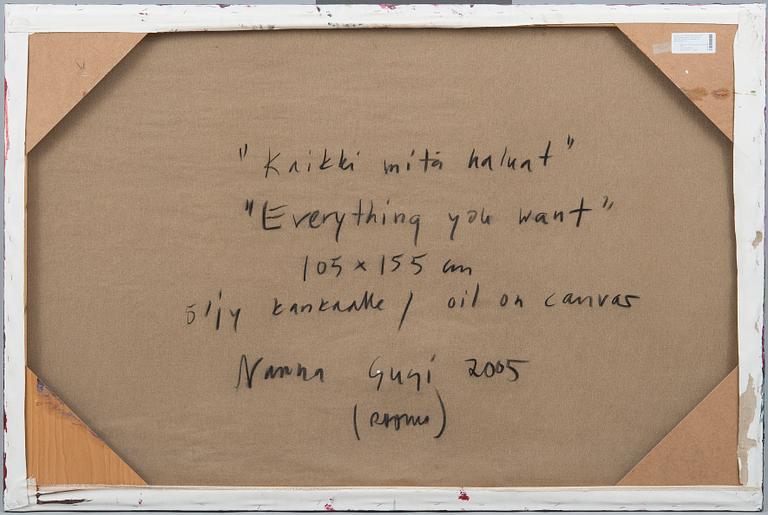 "Kaikki mitä haluat"
"Everything you want"
105 x 155 cm
öljy kankaalle / oil on canvas
Nanna Susi 2005
(ROOMA)